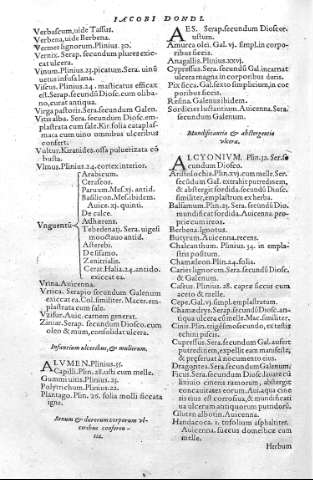 IACOBI DONDI.
Verbascum, uide Tassus.
Verbena, uide Berbena.
Vermes lignorum. Plinius. 30.
Vernix. Serap. secundum plures exic
cat ulcera.
Vinum. Plinius. 23. picatum. Sera. uinũ
ustus infusa lana.
Viscus. Plinius. 24. masticatus efficax
est. Serap. secundũ Diosc. cum oliba-
no, curat antiqua.
Virga pastoris. Sera. secundum Galen.
Vitis alba. Sera. secundum Diosc. em-
plastrata cum sale. Kir. folia cataplas-
mata cum uino omnibus ulceribus
confert.
Vultur. Kiranides. ossa puluerizata cõ
busta.
Vlmus. Plinius. 24. cortex interior.
Vnguentũ
Arabicum.
Ceraseos.
Paruum. Mes. xij. antid.
Basilicon. Mes. ibidem
Auice. 15. quinti.
De calce.
Adhærens.
Tebedenati. Sera. uigesi
mooctauo antid.
Asterebo.
De issamo.
Zenitrialis.
Cerat Halia. 24. antido.
exiccat ea.
Vrina. Auicenna.
Vertica. Serapio secundum Galenum
exiccat ea. Col. similiter. Macer. em-
plastrata cum sale.
Vssifur. Auic. cartiem generat.
Zinzar. Serap. secundum Diosco. cum
oleo & mirra, consolidat ulcera.
Infantium ulceribus, & mulierum.
ALVMEN. Plinius. 35.
Capilli. Plin. 28. usti cum melle.
Gummi uitis. Plinius. 23.
Polytrichum. Plinius. 22.
Plantago. Plin. 26. folia molli siccata
igne.
Senum & duorum corporum ul-
ceribus conferen-
tia.
AES. Serap. secundum Dioscor.
ustum.
Amurca olei. Gal. vj. simpl. in corpo-
ribus siccis.
Anagallis. Plinius. xxvj.
Cypressus. Sera. secundũ Gal. incarnat
ulcera magna in corporibus duris.
Pix sicca. Gal. sexto simplicium, in cor
poribus siccis.
Resina. Galenus ibidem.
Sordicies lustantium. Auicenna. Sera.
secundum Galenum.
Mundificantia & abstergentia
ulcera.
ALCYONIVM. Plin. 32. Ser. se
cundum Diosco.
Aristolochia. Plin. xxvj. cum melle. Ser.
secũdum Gal. extrahit putredinem,
& abstergit sordida. secundũ Diosc.
similiter, emplastrum ex herba.
Balsamum. Plin. 23. Sera. secundũ Dio.
mundificat sordida. Auicenna. pro-
prie cum ireos.
Berbena. Ignotus.
Butyrum. Auicenna. recens.
Chalcanthum. Plinius. 34. in empla-
stris positum.
Chamæleon. Plin. 24. folia.
Cariei lignorem. Sera. secundũ Diosc.
& Galenum.
Castus. Plinius. 28. capræ siccus cum
aceto & melle.
Cepe. Gal. vj. simpl. emplastratum.
Chamædrys. Serap. secundũ Diosc. an-
tiqua ulcera cũ melle. Mac. similiter.
Cinis. Plin. trigesimosecundo, ex testis
echini piscis.
Cupressus. Sera. secundum Gal. aufert
putredinem, expellit eam manifeste,
& præseruat à nocumento eius.
Dragontea. Sera. secundum Galenum,
Ficus. Sera. secundum Diosc. lixiuiũ cũ
lixiuio cineris ramorum, abstergit
concauitates eorum. Aui. aqua cine
ris eius est corrosiua, & mundificati
ua ulcerum antiquorum putridorũ.
Gluten alzotin. Auicenna.
Handacoca. 2. tosolium asphaltiter.
Auicenna. succus domesticæ cum
melle.
Herbum